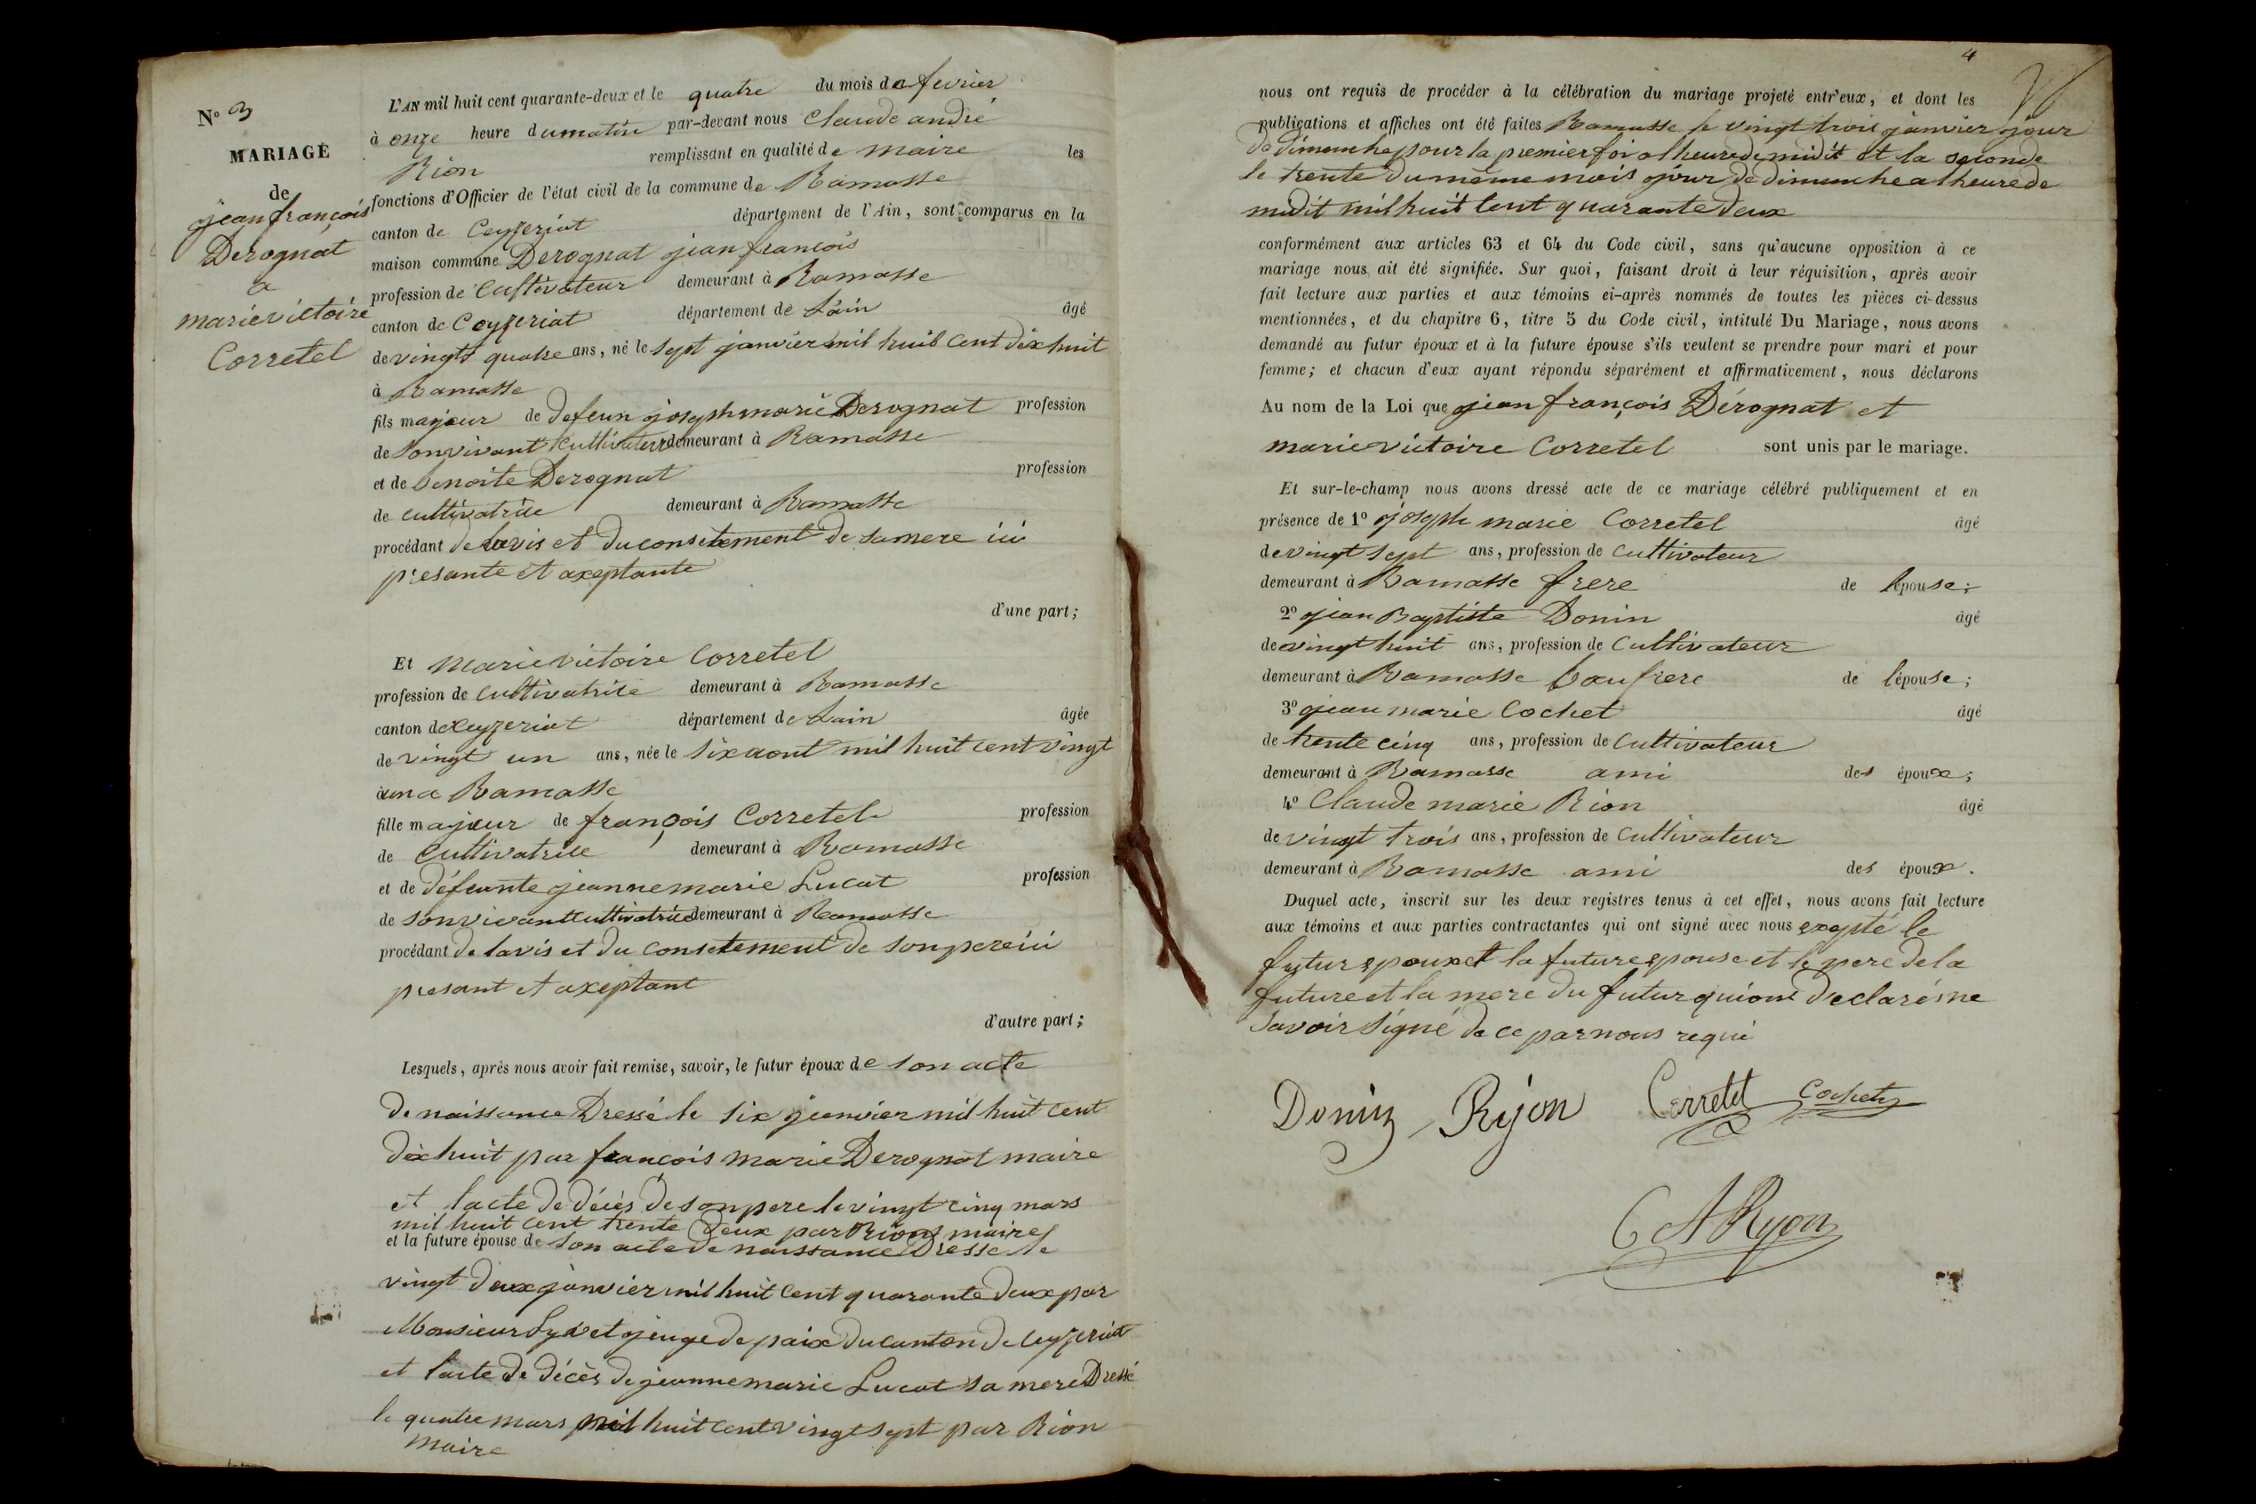 N° 3
MARIAGE
de
jean françois
Derognat
a
marie victoire
Corretel
L'AN mil huit cent quarante-deux et le quatre du mois de fevrier
à onze heure du matin par-devant nous Claude andré
Rion remplissant en qualité de maire les
fonctions d'Officier de l'état civil de la commune de Ramasse
canton de Ceyzeriat département de l'Ain, sont comparus en la
maison commune Derognat jean francois
profession de Cultivateur demeurant à Ramasse
canton de Ceyzeriat département de Lain âgé
de vingts quatre ans, né le sept janvier mil huit cent dix huit
à Ramasse
fils majeur de defeun joseph marie Derognat profession
de sonvivant Cultivateur demeurant à Ramasse
et de benoite Derognat profession
de cultivatrice demeurant à Ramasse
procédant de lavis et du consetement de sa mere ici
presante et axeptante
d'une part;
Et marie victoire Corretel
profession de cultivatrice demeurant à Ramasse
canton de Ceyzeriat département de Lain âgée
de vingt un ans, née le six aout mil huit cent vingt
un a Ramasse
fille majeur de françois Corretel profession
de Cultivatrice demeurant à Ramasse
et de défeunte jeanne marie Lucat profession
de sonvivant cultivatrice demeurant à Ramasse
procédant de lavis et du consetement de son pere ici
presant et axeptant
d'autre part;
Lesquels, après nous avoir fait remise, savoir, le futur époux de son acte
de naissance Dressé le six janvier mil huit cent
dix huit par françois marie Derognat maire
et lacte de décès de son pere le vingt cinq mars
mil huit cent trente deux par Rion maire
et la future épouse de son acte de naissance Dressé le
vingt deux janvier mil huit cent quarante deux par
Monsieur juge de paix du canton de Ceyzeriat
et lacte de décès de jeanne marie Lucat sa mere Dressé
le quatre mars mil huit cent vingt sept par Rion
maire
4
nous ont requis de procéder à la célébration du mariage projeté entr'eux, et dont les
publications et affiches ont été faites Ramasse le vingt trois janvier jour
de dimanche pour la premier foi a lheure de midit et la seconde
le trente du même mois jour de dimanche a lheure de
midit mil huit cent quarante deux
conformément aux articles 63 et 64 du Code civil, sans qu'aucune opposition à ce
mariage nous ait été signifiée. Sur quoi, faisant droit à leur réquisition, après avoir
fait lecture aux parties et aux témoins ci-après nommés de toutes les pièces ci-dessus
mentionnées, et du chapitre 6, titre 5 du Code civil, intitulé Du Mariage, nous avons
demandé au futur époux et à la future épouse s'ils veulent se prendre pour mari et pour
femme; et chacun d'eux ayant répondu séparément et affirmativement, nous déclarons
Au nom de la Loi que jean françois Dérognat et
marie victoire Corretel sont unis par le mariage.
Et sur-le-champ nous avons dressé acte de ce mariage célébré publiquement et en
présence de 1° joseph marie Corretel âgé
de vingt sept ans, profession de cultivateur
demeurant à Ramasse frere de lépouse;
2° jean Baptiste Donin âgé
de vingt huit ans, profession de Cultivateur
demeurant à Ramasse beaufrere de lépouse;
3° jean marie Cochet âgé
de trente cinq ans, profession de Cultivateur
demeurant à Ramasse ami des époux;
4° Claude marie Rion âgé
de vingt trois ans, profession de Cultivateur
demeurant à Ramasse ami des époux.
Duquel acte, inscrit sur les deux registres tenus à cet effet, nous avons fait lecture
aux témoins et aux parties contractantes qui ont signé avec nous exepté le
futur epoux et la future epouse et le pere de la
future et la mere du futur qui ont Declaré ne
savoir signé de ce par nous requi
Donin Ryon Corretel Cochet
C A Ryon